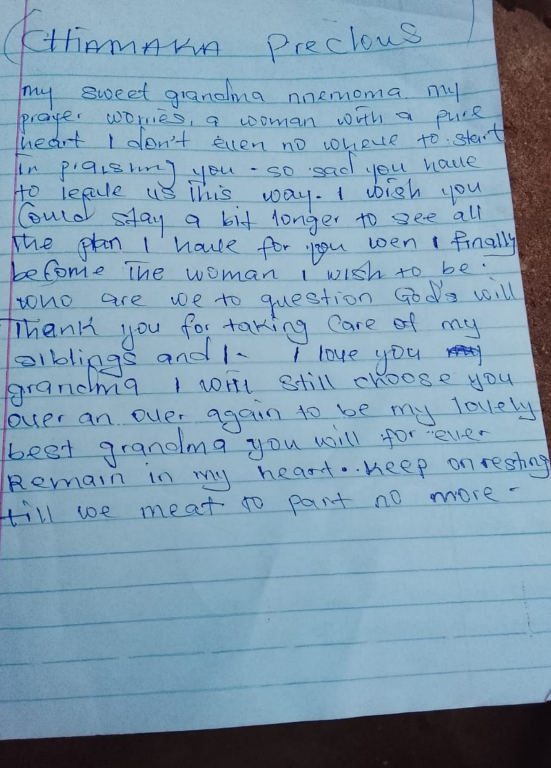 (CHIAMAKA Precious)
my sweet grandma nnemoma my
prayer worries, a woman with a pure
heart I don't even no wheue to start
in praising you - so sad you have
to legule us This way. I wish you
Could stay a bit longer to see all
The plan I have for you wen I finally
become The woman I wish to be.
who are we to question God's will
Thank you for taking Care of my
siblings and I - I love you
grandma I will still choose you
over an over again to be my lovely
best grandma you will for ever
Remain in my heart.. Keep on resting
till we meat to part no more -